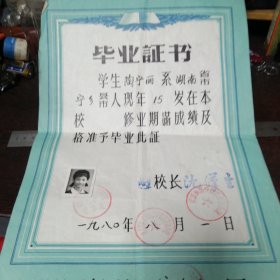 毕业証书
学生陶宁丽系湖南省
宁乡县人现年15岁在本
校 修业期满成绩及
格准予毕业此証
校长沈
一九八〇年八月一日